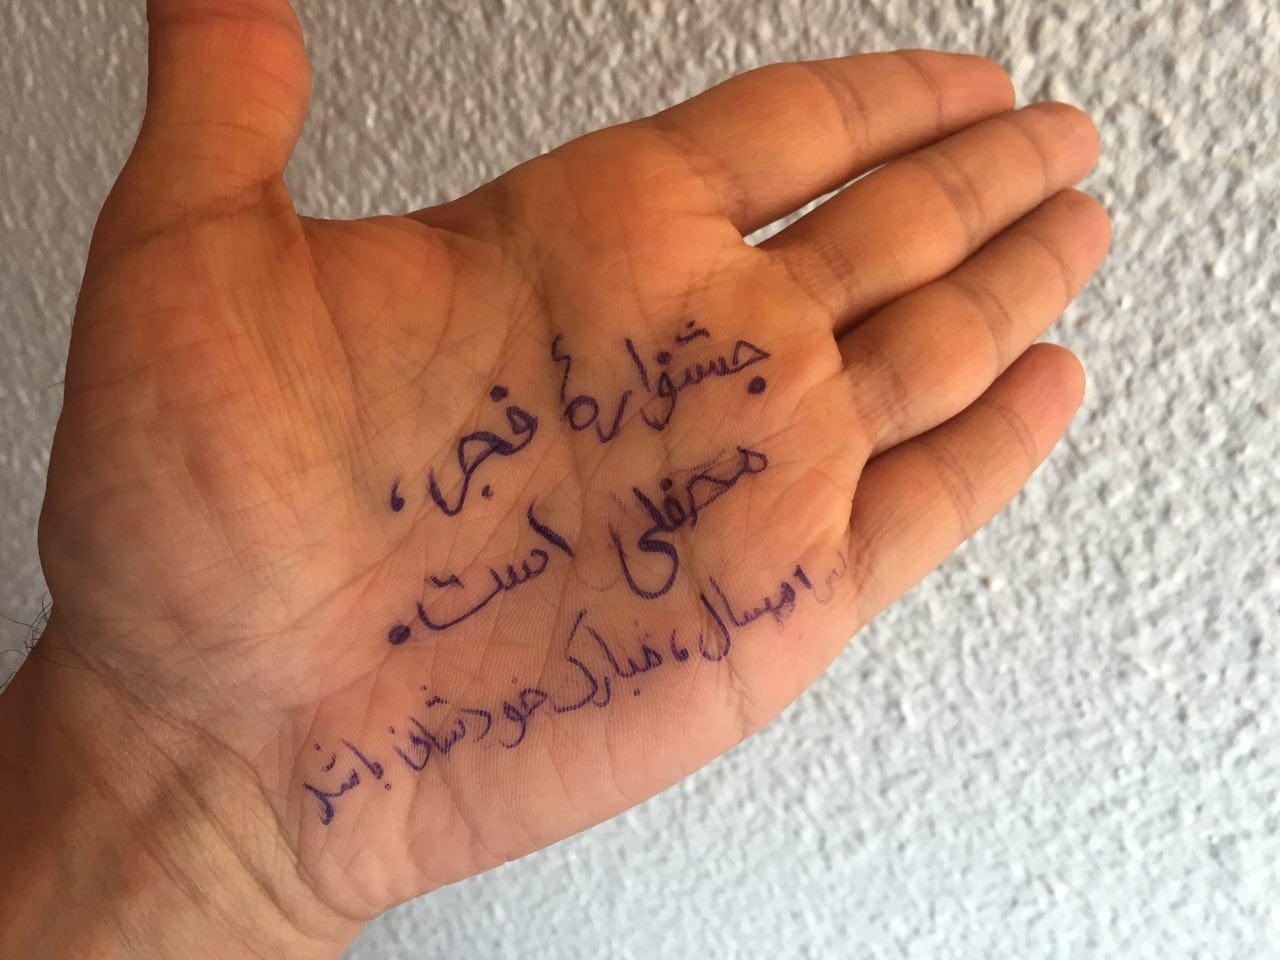 جشنوارهٔ فجر،
محفلی است.
امسال، مبارک خودشان باشد